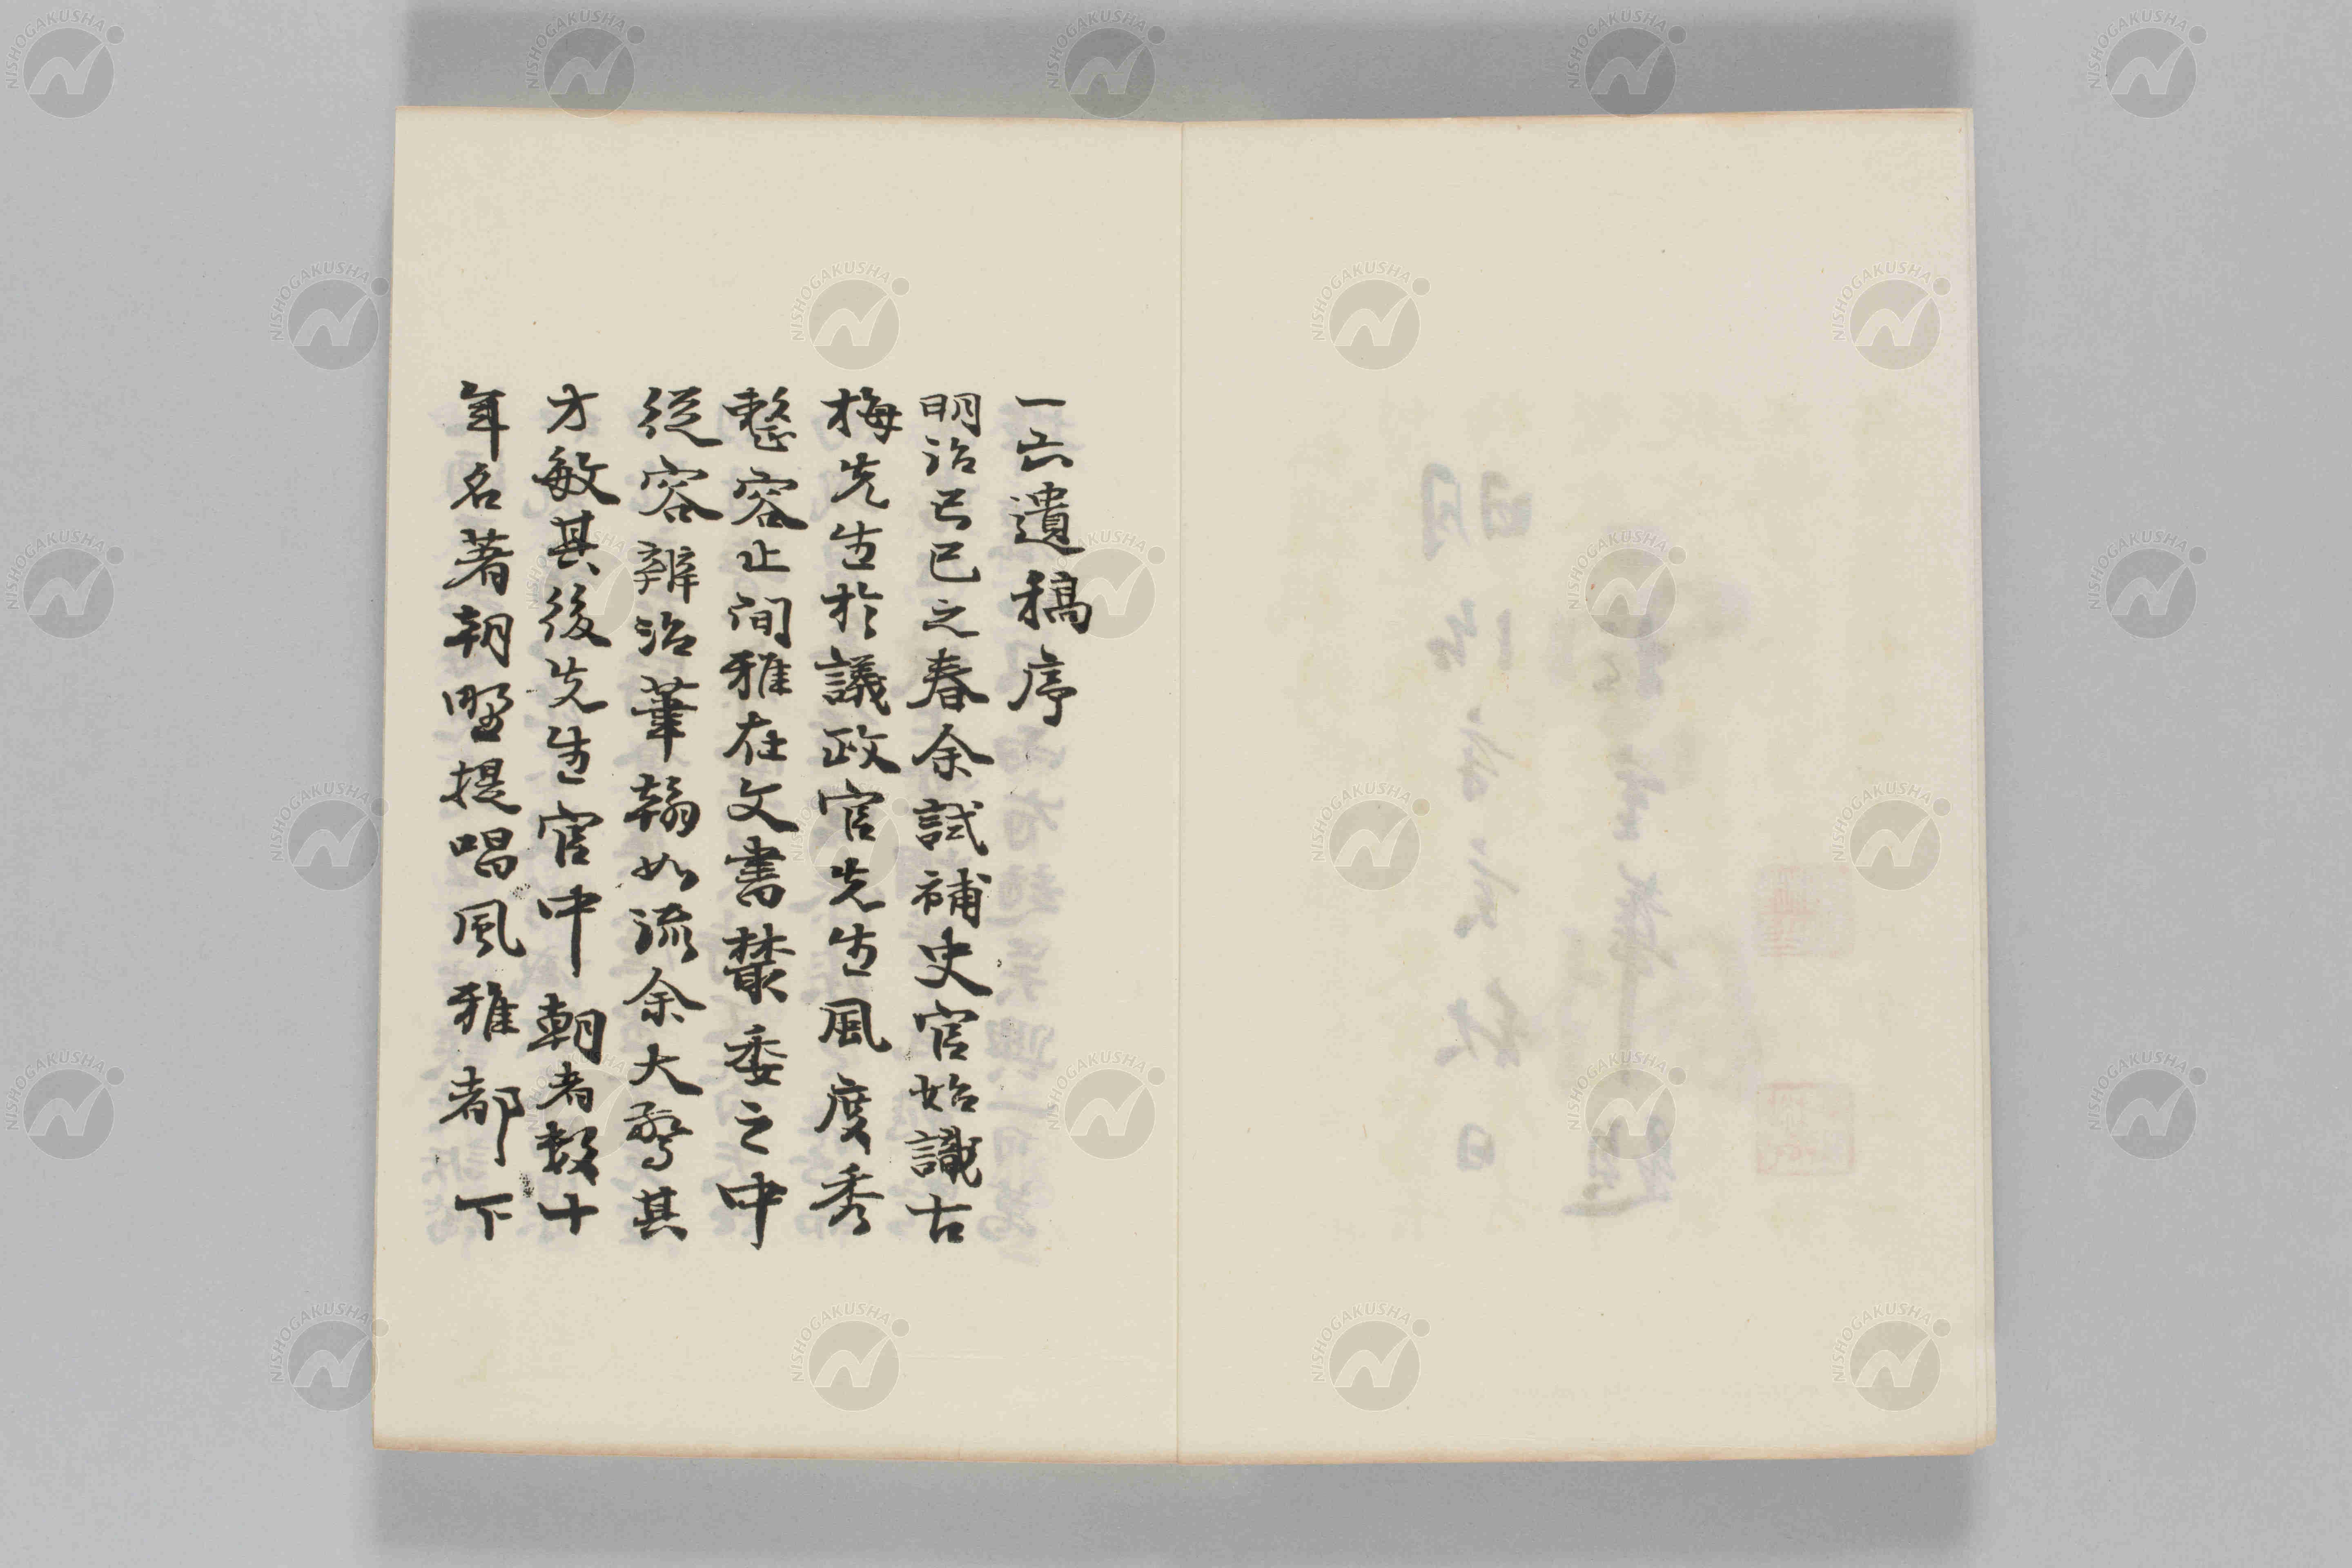 一六遺稿序
明治己巳之春余試補史官始識古
梅先生於議政官先生風度秀
整容止間雅在文書叢委之中
從容辨治筆翰如流余大驚其
才敏其後先生官中朝者數十
年名著朝野提唱風雅都下
NISHOGAKUSHA